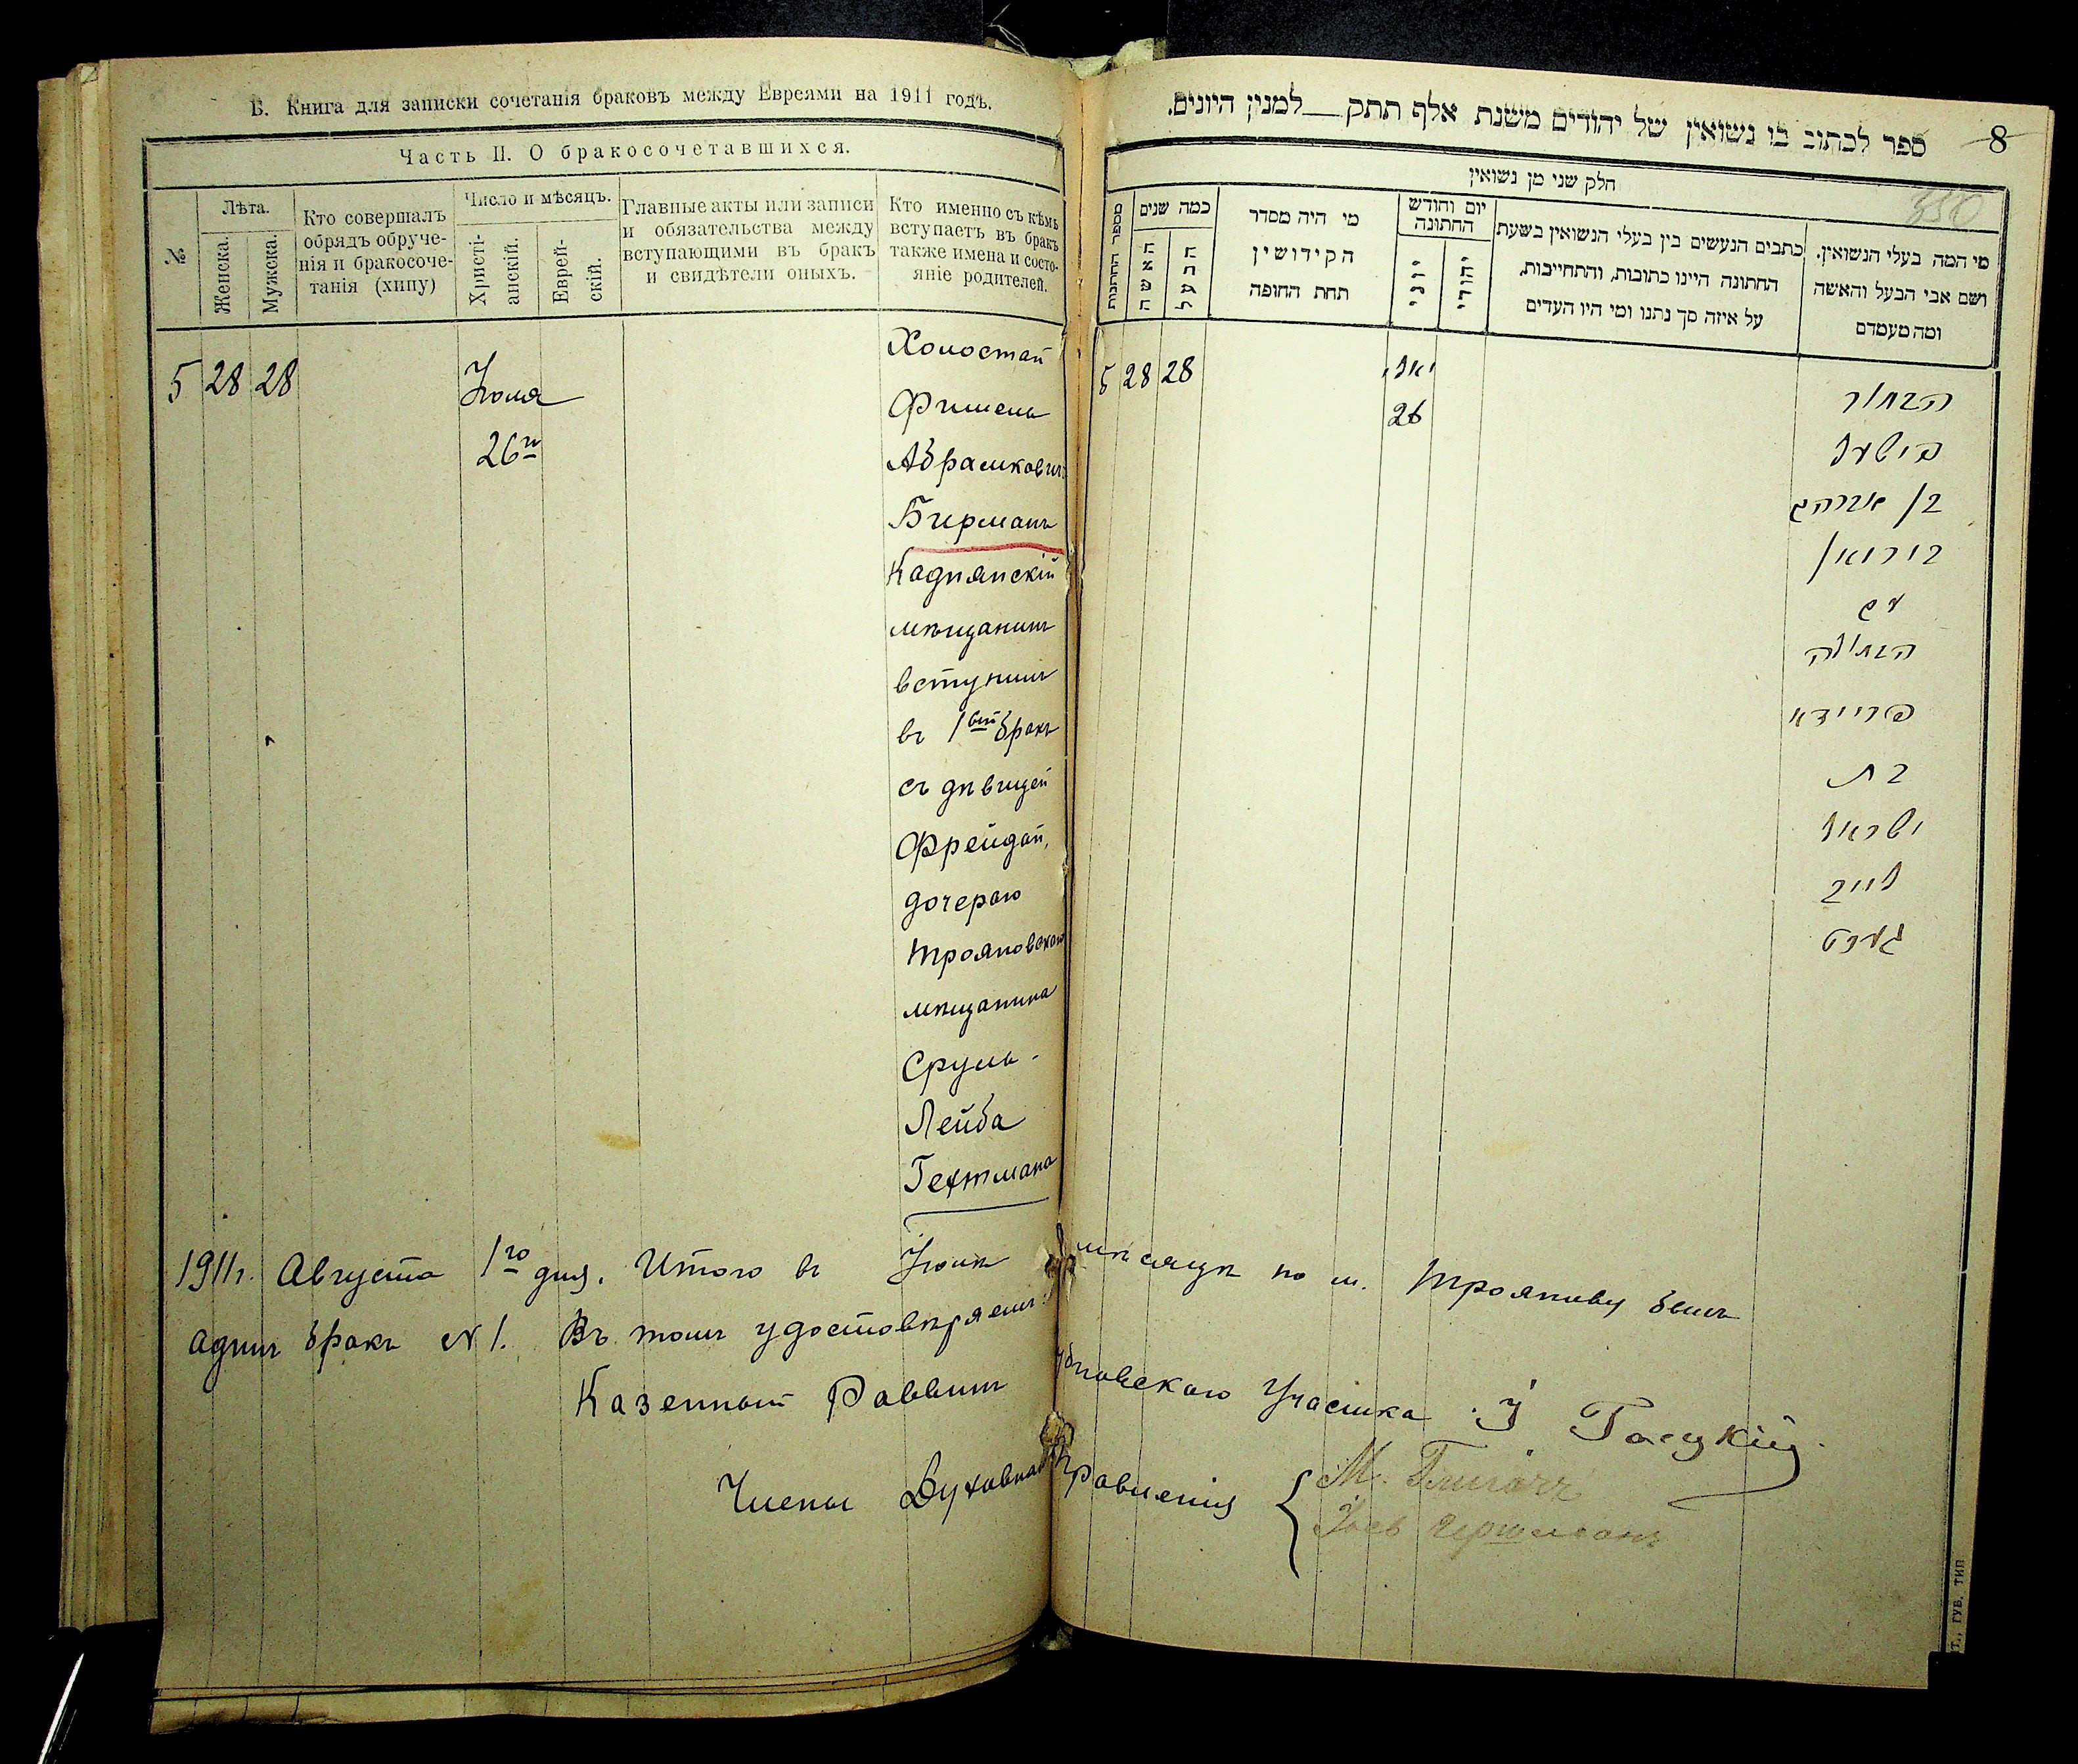 Б. Книга для записки сочетанія браковъ между Евреями на 1911 годъ.
Часть II. О бракосочетавшихся.
№
Лѣта.
Женска.
Мужска.
Кто совершалъ
обрядъ обруче-
нія и бракосоче-
танія (хипу)
Число и мѣсяцъ.
Христі-
анскій.
Еврей-
скій.
Главные акты или записи
и обязательства между
вступающими въ бракъ
и свидѣтели оныхъ.
Кто именно съ кѣмъ
вступаетъ въ бракъ
также имена и состо-
яніе родителей.
5 28 28
Іюля
26го
Холостой
Фишель
Абрамковичъ
Бирманъ
Каднянскій
мѣщанинъ
вступилъ
въ 1вый бракъ
съ дѣвицей
Фрейдой,
дочерью
Трояновскаго
мѣщанина
Сруль-
Лейба
Гехтмана
1911г. Августа 1го дня. Итого въ Іюлѣ мѣсяцѣ по м. Троянову былъ
адинъ бракъ № 1. Въ томъ удостовѣряемъ:
Казенный Раввинъ Участка
Члены Духовнаго Правленія
8
ספר לכתוב בו נשואין של יהודים משנת אלף תתק למנין היונים.
חלק שני מן נשואין
מספר החתונות
כמה שנים
האשה
הבעל
מי היה מסדר
הקידושין
תחת החופה
יום וחודש
החתונה
יוני
יהודי
כתבים הנעשים בין בעלי הנשואין בשעת
החתונה היינו כתובות, והתחייבות,
על איזה סך נתנו ומי היו העדים
מי המה בעלי הנשואין.
ושם אבי הבעל והאשה
ומה מעמדם
5 28 28
יאלי
26
הבחור
פישעל
בן אברהם
בירמאן
עם
הבתולה
פריידא
בת
ישראל
לייב